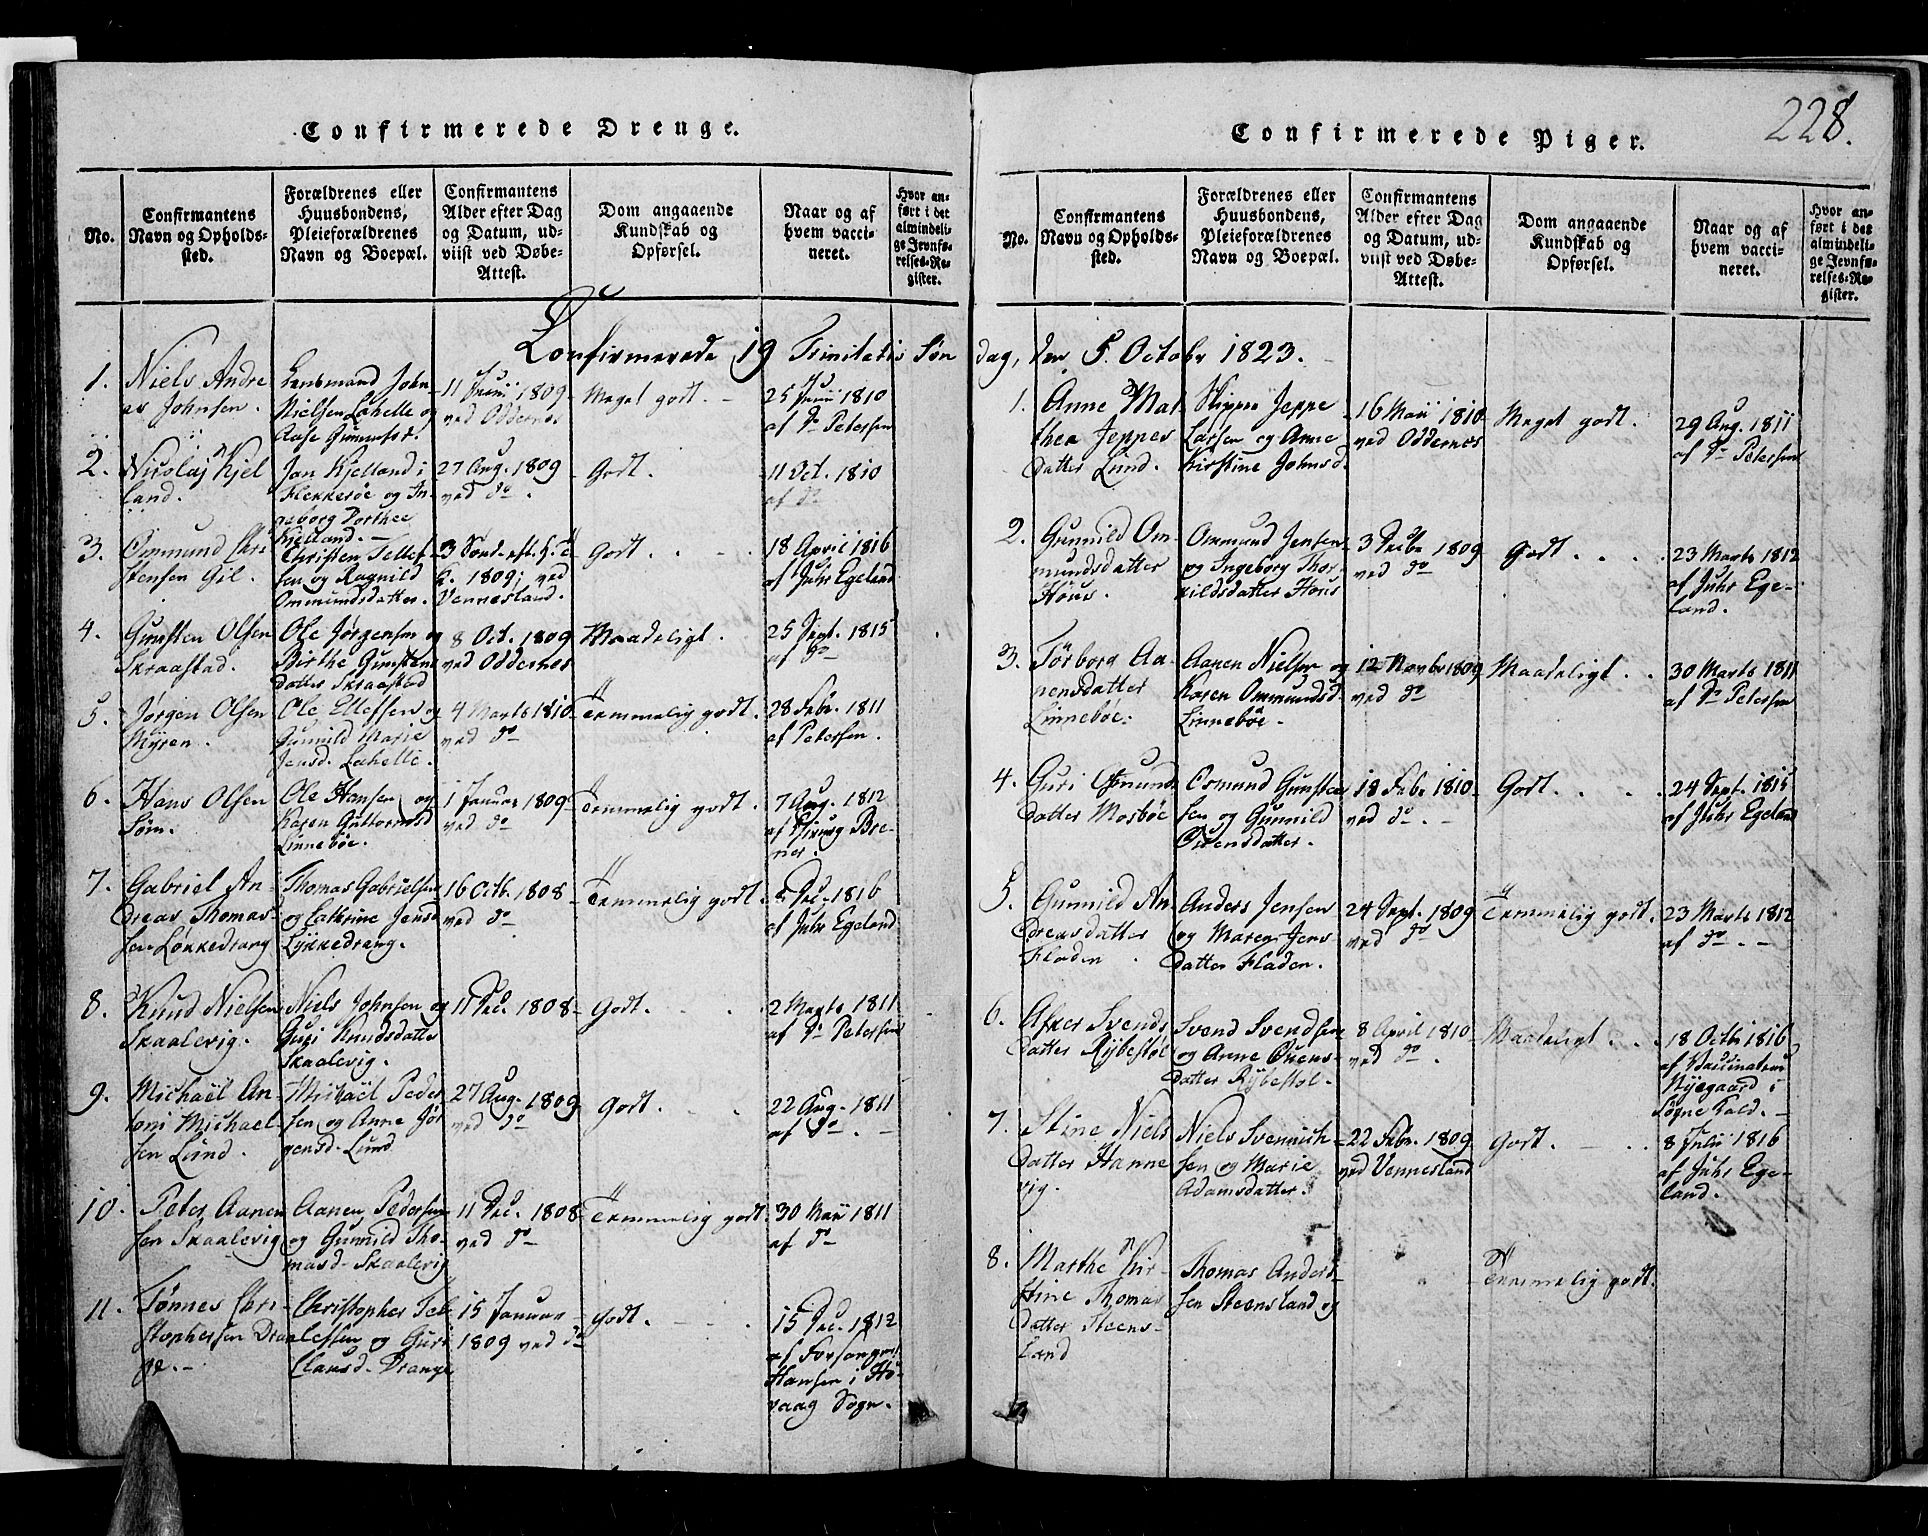 Confirmerede Drenge.
No.
Confirmantens
Navn og Opholds-
sted.
Forældrenes eller
Huusbondens,
Pleieforældrenes
Navn og Boepæl.
Confirmantens
Alder efter Dag
og Datum, ud-
viist ved Døbe-
Attest.
Dom angaaende
Kundskab og
Opførsel.
Naar og af
hvem vacci-
neret.
Hvor an-
ført i det
almindeli-
ge Jevnfø-
relses-Re-
gister.
Confirmerede 19 Trinitatis Søn
1.
Niels Andre
as Johnsen.
Lensmand John
Nielsen Lahelle og
Aase Gunnufsd.
11 Junii 1809
ved Oddernes
Meget godt.
25 Junii 1810
af Dr Petersen
2.
Nicolaj Kjel
land.
Jan Kjelland i
Flekkerøe og In-
geborg Dorthee
Kjelland.
27 Aug. 1809
ved do.
Godt.
11 Oct. 1810
af do
3.
Ommund Chri
stensen Gil.
Christen Tellef
sen og Ragnild
Ommundsdatter.
3 Sønd. eft. H. 3
K. 1809; ved
Vennesland.
Godt.
18 April 1816
af Juhr Egeland
4.
Gunsten Olsen
Skraastad.
Ole Jørgensen og
Birthe Gunstens
datter Skraastad
8 Oct. 1809
ved Oddernes
Maadeligt.
25 Sept. 1815
af do
5.
Jørgen Olsen
Myren.
Ole Ellefsen og
Gunnild Marie
Jensd. Lahelle.
4 Marts 1810
ved do
Temmelig godt.
28 Febr. 1811
af Petersen.
6.
Hans Olsen
Søm.
Ole Hansen og
Karen Guttormsd
Linnebøe.
1 Januar 1809
ved do
Temmelig godt.
7 Aug. 1812
af Chirurg Bre-
ner.
7.
Gabriel An-
dreas Thomas-
sen Løkkedrang
Thomas Gabrielsen
og Cathrine Jensd
Lykkedrang.
16 Octb. 1808
ved do
Temmelig godt.
Dec. 1816
af Juhr Egeland
8.
Knud Nielsen
Skaalevig.
Niels Johnsen og
Guri Knudsdatter
Skaalevig.
11 Dec. 1808
Godt.
2 Marts 1811
af Dr Petersen
9.
Michael An-
toni Michael-
sen Lund.
Michael Peder
sen og Anne Jør
gensd. Lund
27 Aug. 1809
ved do
Godt.
22 Aug. 1811
af do.
10.
Peter Aanen
sen Skaalevig
Aanen Pedersen
og Gunnild Tho-
masd. Skaalevig
11 Dec. 1808
ved do
Temmelig godt.
30 Maii 1811
af do
11.
Tønnes Chri-
stophersen Dran
ge.
Christopher Tel
lefsen og Guri
Clausd. Drange
15 Januar
1809 ved do
Godt.
15 Dec. 1812
af Forsanger
Hansen i Hø-
vaag Sogn.
228.
Confirmerede Piger.
No.
Confirmantens
Navn og Opholds-
sted.
Forældrenes eller
Huusbondens,
Pleieforældrenes
Navn og Boepæl.
Confirmantens
Alder efter Dag
og Datum, ud-
viist ved Døbe-
Attest.
Dom angaaende
Kundskab og
Opførsel.
Naar og af
hvem vacci-
neret.
Hvor an-
ført i det
almindeli-
ge Jevnfø-
relses-Re-
gister.
dag, den 5. Octobr 1823.
1.
Anne Mar
thea Jeppes
datter Lund.
Skipper Jeppe
Larsen og Anne
Kirstine Johnsd.
16 Maii 1810
ved Oddernes
Meget godt.
29 Aug. 1811
af Dr Petersen
2.
Gunnild Om
mundsdatter
Hous.
Ommund Jensen
og Ingeborg Thor
kildsdatter Hous
3 Decbr 1809
ved do
Godt.
23 Marts 1812
af Juhr Ege-
land.
3.
Torborg Aa-
nensdatter
Linnebøe.
Aanen Nielsen og
Karen Ommundsd
Linnebøe.
12 Novbr 1809
ved do
Maadeligt.
30 Marts 1811
af Dr Petersen
4.
Guri Osmunds
datter Mosbøe
Osmund Gunsten
sen og Gunnild
Owensdatter.
18 Febr 1810
ved do.
Godt.
24 Sept. 1815
af Juhr Egeland
5.
Gunnild An
dreasdatter
Fladen
Anders Jensen
og Maren Jens-
datter Fladen.
24 Sept. 1809
ved do
Temmelig godt.
23 Marts 1812
af do.
6.
Asker Svends
datter Rybestøl
Svend Svendsen
og Anne Owens-
datter Rybestøl.
8 April 1810
ved do.
Maadeligt.
18 Octb 1816
af Vaccinateur
Nyegaard i
Søgne Pald.
7.
Stine Niels
datter Hanne
vig.
Niels Svennich-
sen og Marie
Adamsdatter.
22 Febr. 1809
ved Vennesland
Godt.
8 Julii 1816
af Juhr Ege-
land.
8.
Marthe Kir-
stine Thomas
datter Steens-
land
Thomas Anders
sen Steensland og
Temmelig godt.